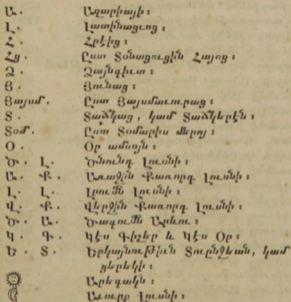 Ա. Ազարիայի:
Լ. Լատինացւոց:
Հ. Հրէից:
Հց. Ըստ Տօնացուցին Հայոց:
Ձ.
Յ. Յունաց:
Յայսմ. Ըստ Յայսմաւուրաց:
Տ. Տաճկաց, կամ Տաճկերէն:
Տօմ. Ըստ Տօմարիս մերոյ:
Օ. Օր ամսոյն:
Ծ. Լ. Ծնունդ Լուսնի:
Ա. Ք. Առաջին Քառորդ Լուսնի:
Լ. Լ. Լրումն Լուսնի:
Վ. Ք. Վերջին Քառորդ Լուսնի:
Ծ. Ա. Ծագումն Արեւու:
Կ. Գ. Կէս Գիշեր և Կէս Օր:
Ե. Տ. Երկայնութիւն Տուընջեան, կամ
ցերեկի:
Արեգակն:
Աւուրք Լուսնի: